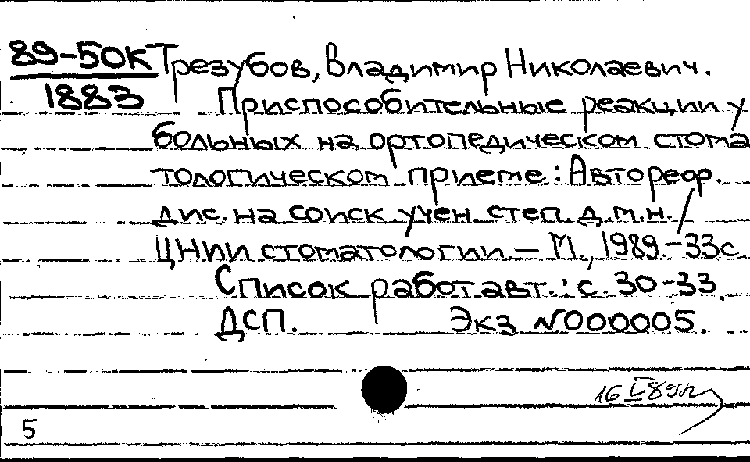 89-50К Трезубов, Владимир Николаевич.
1883 Приспособительные реакции у
больных на ортопедическом стома
тологическом приеме: Автореф.
дис. на соиск учен. степ. д.м.н. /
ЦНИИ стоматологии. - М., 1989. - 33с.
Список работ авт.: с. 30-33.
ДСП. Экз N000005.
5